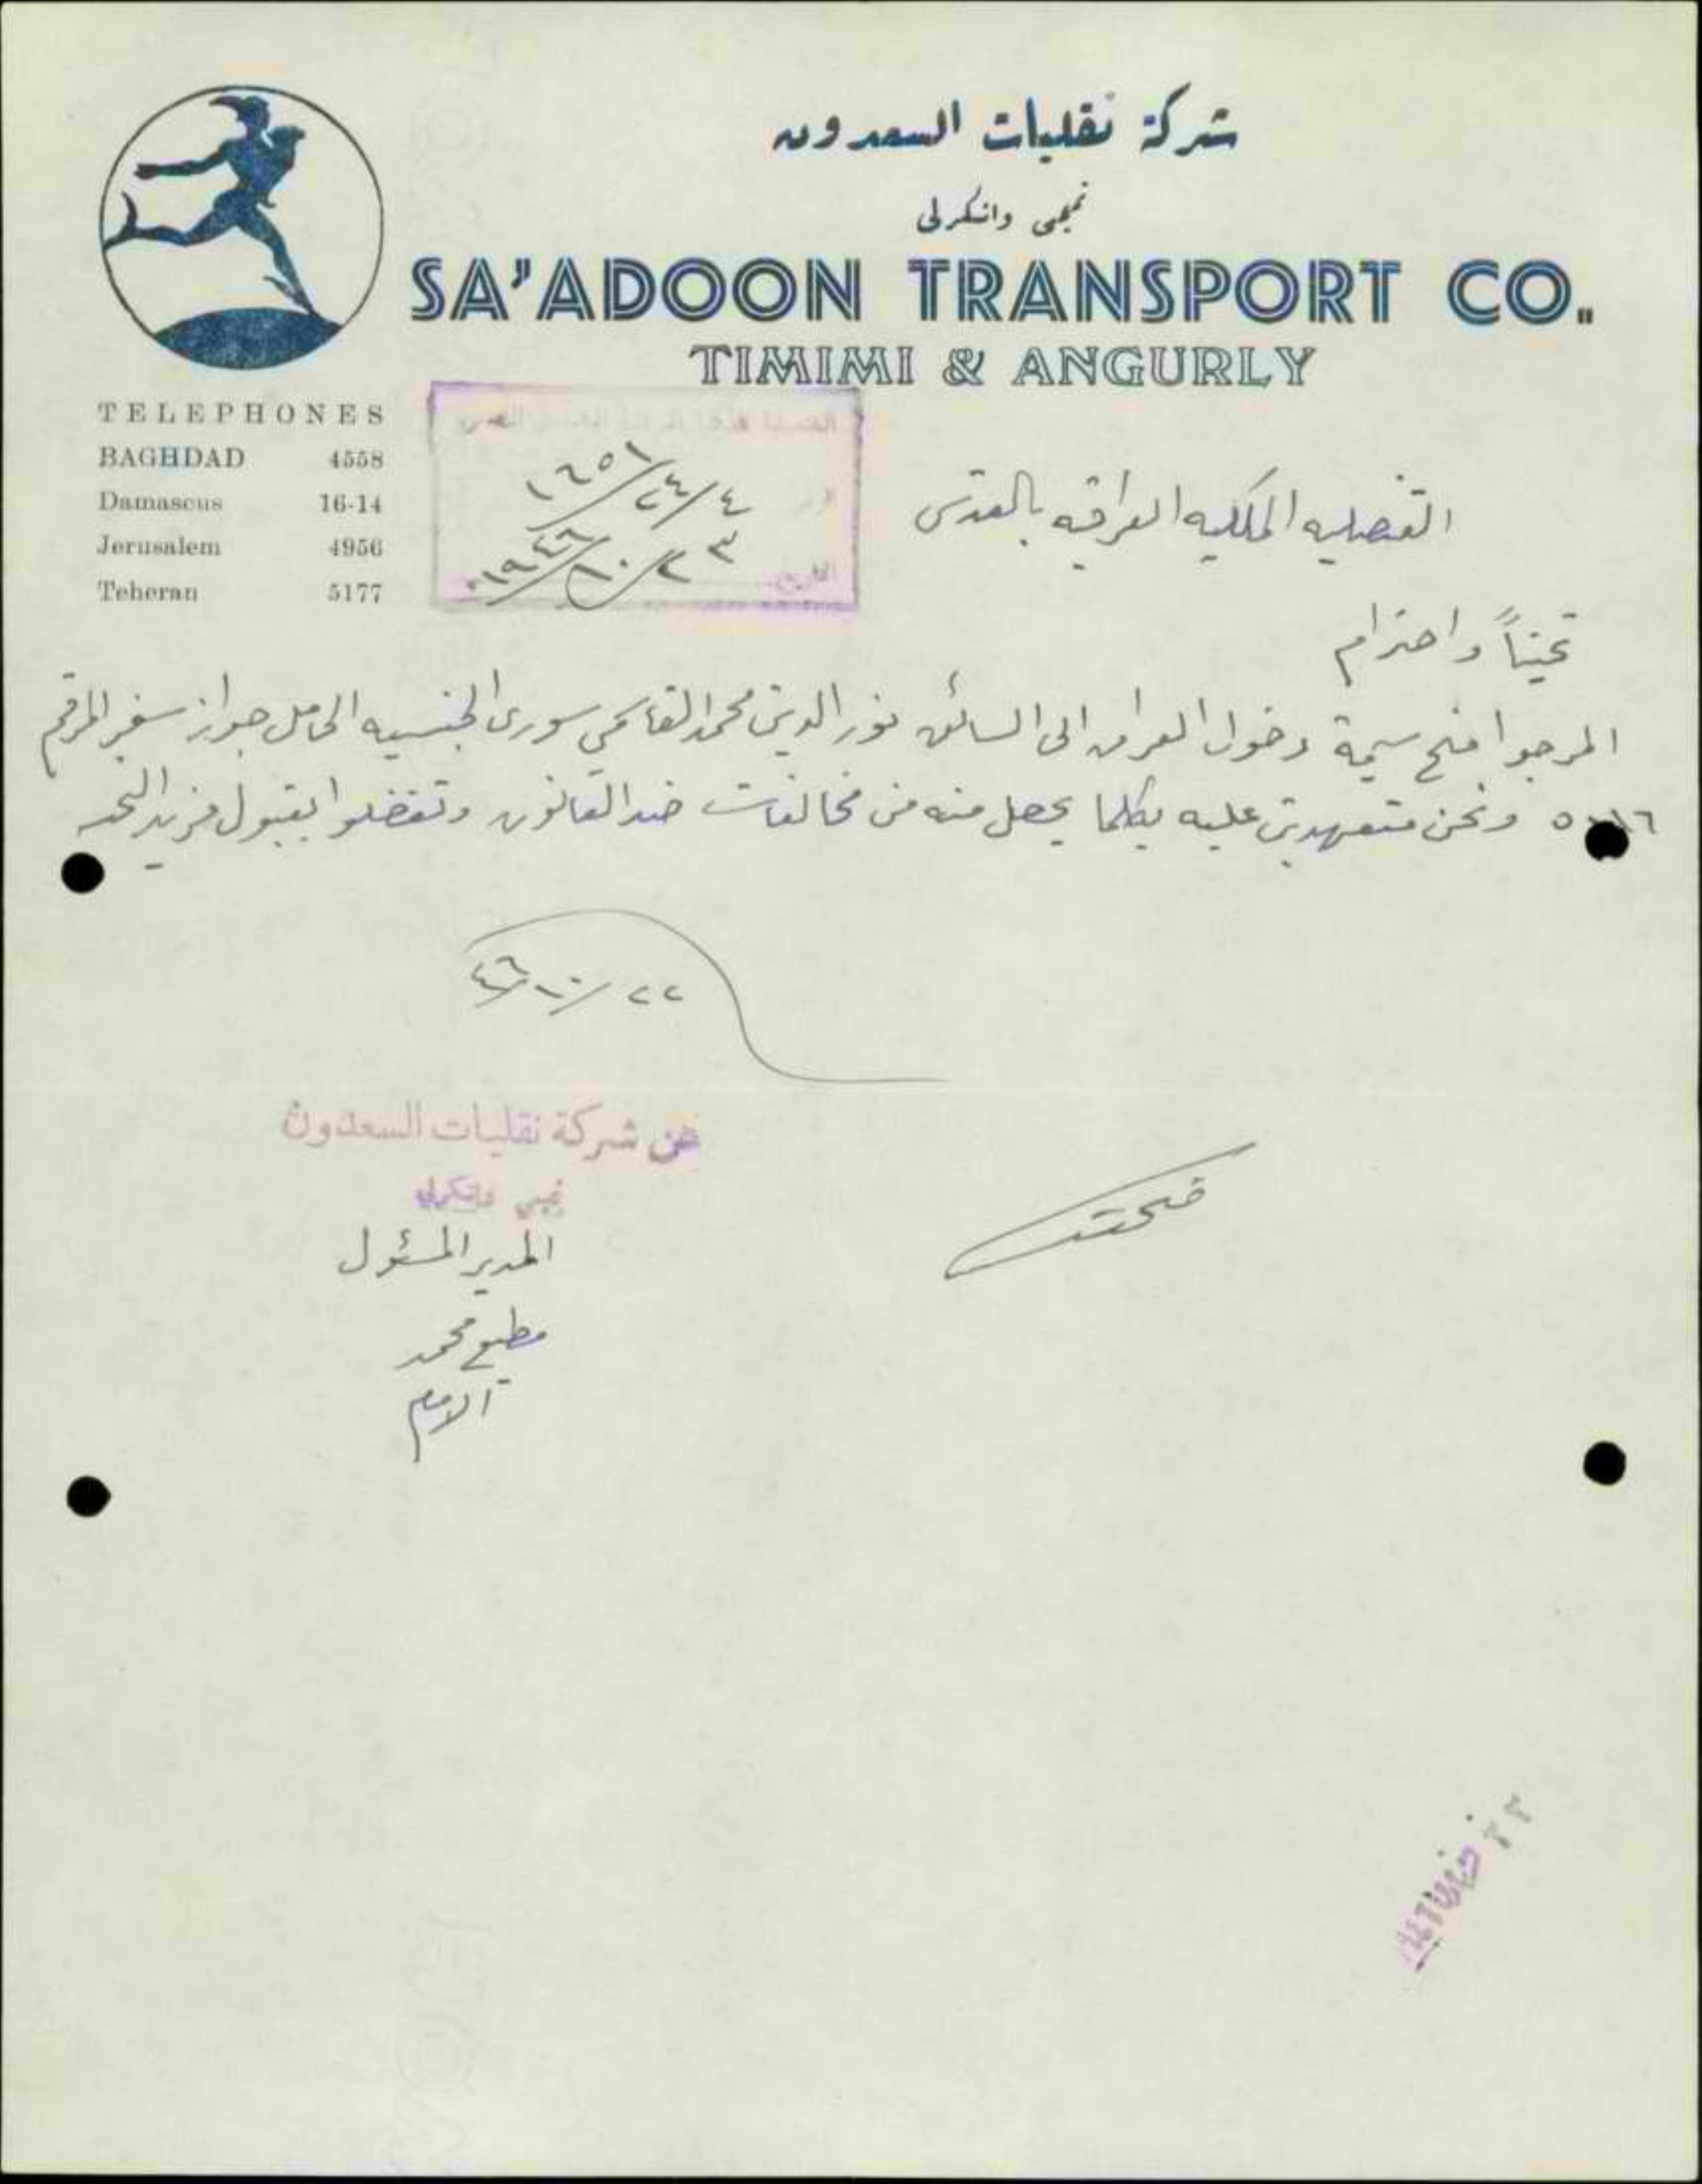 شركة نقليات السعدون
تميمي وانكرلي
SA'ADOON TRANSPORT CO.
TIMIMI & ANGURLY
TELEPHONES
BAGHDAD 4558
Damascus 16-14
Jerusalem 4956
Teheran 5177
١٦٥١/٢٤/٤
التاريخ ٢٣/١٠/١٩٤٦
القنصليه الملكيه العراقيه بالقدس
تحيتاً واحترام
المرجوا منح سمة دخول العراق الى السائق نور الدين محمد سورى الجنسيه الحامل جواز سفر المرقم
ونحن متعهدين عليه بكلما يحصل منه من مخالفات ضد القانون وتفضلوا بقبول مزيد التحيه
٢٢/١٠/٤٦
عن شركة نقليات السعدون
تميمي وانكرلي
المدير المسئول
مطيع محمد
الامام
منحت